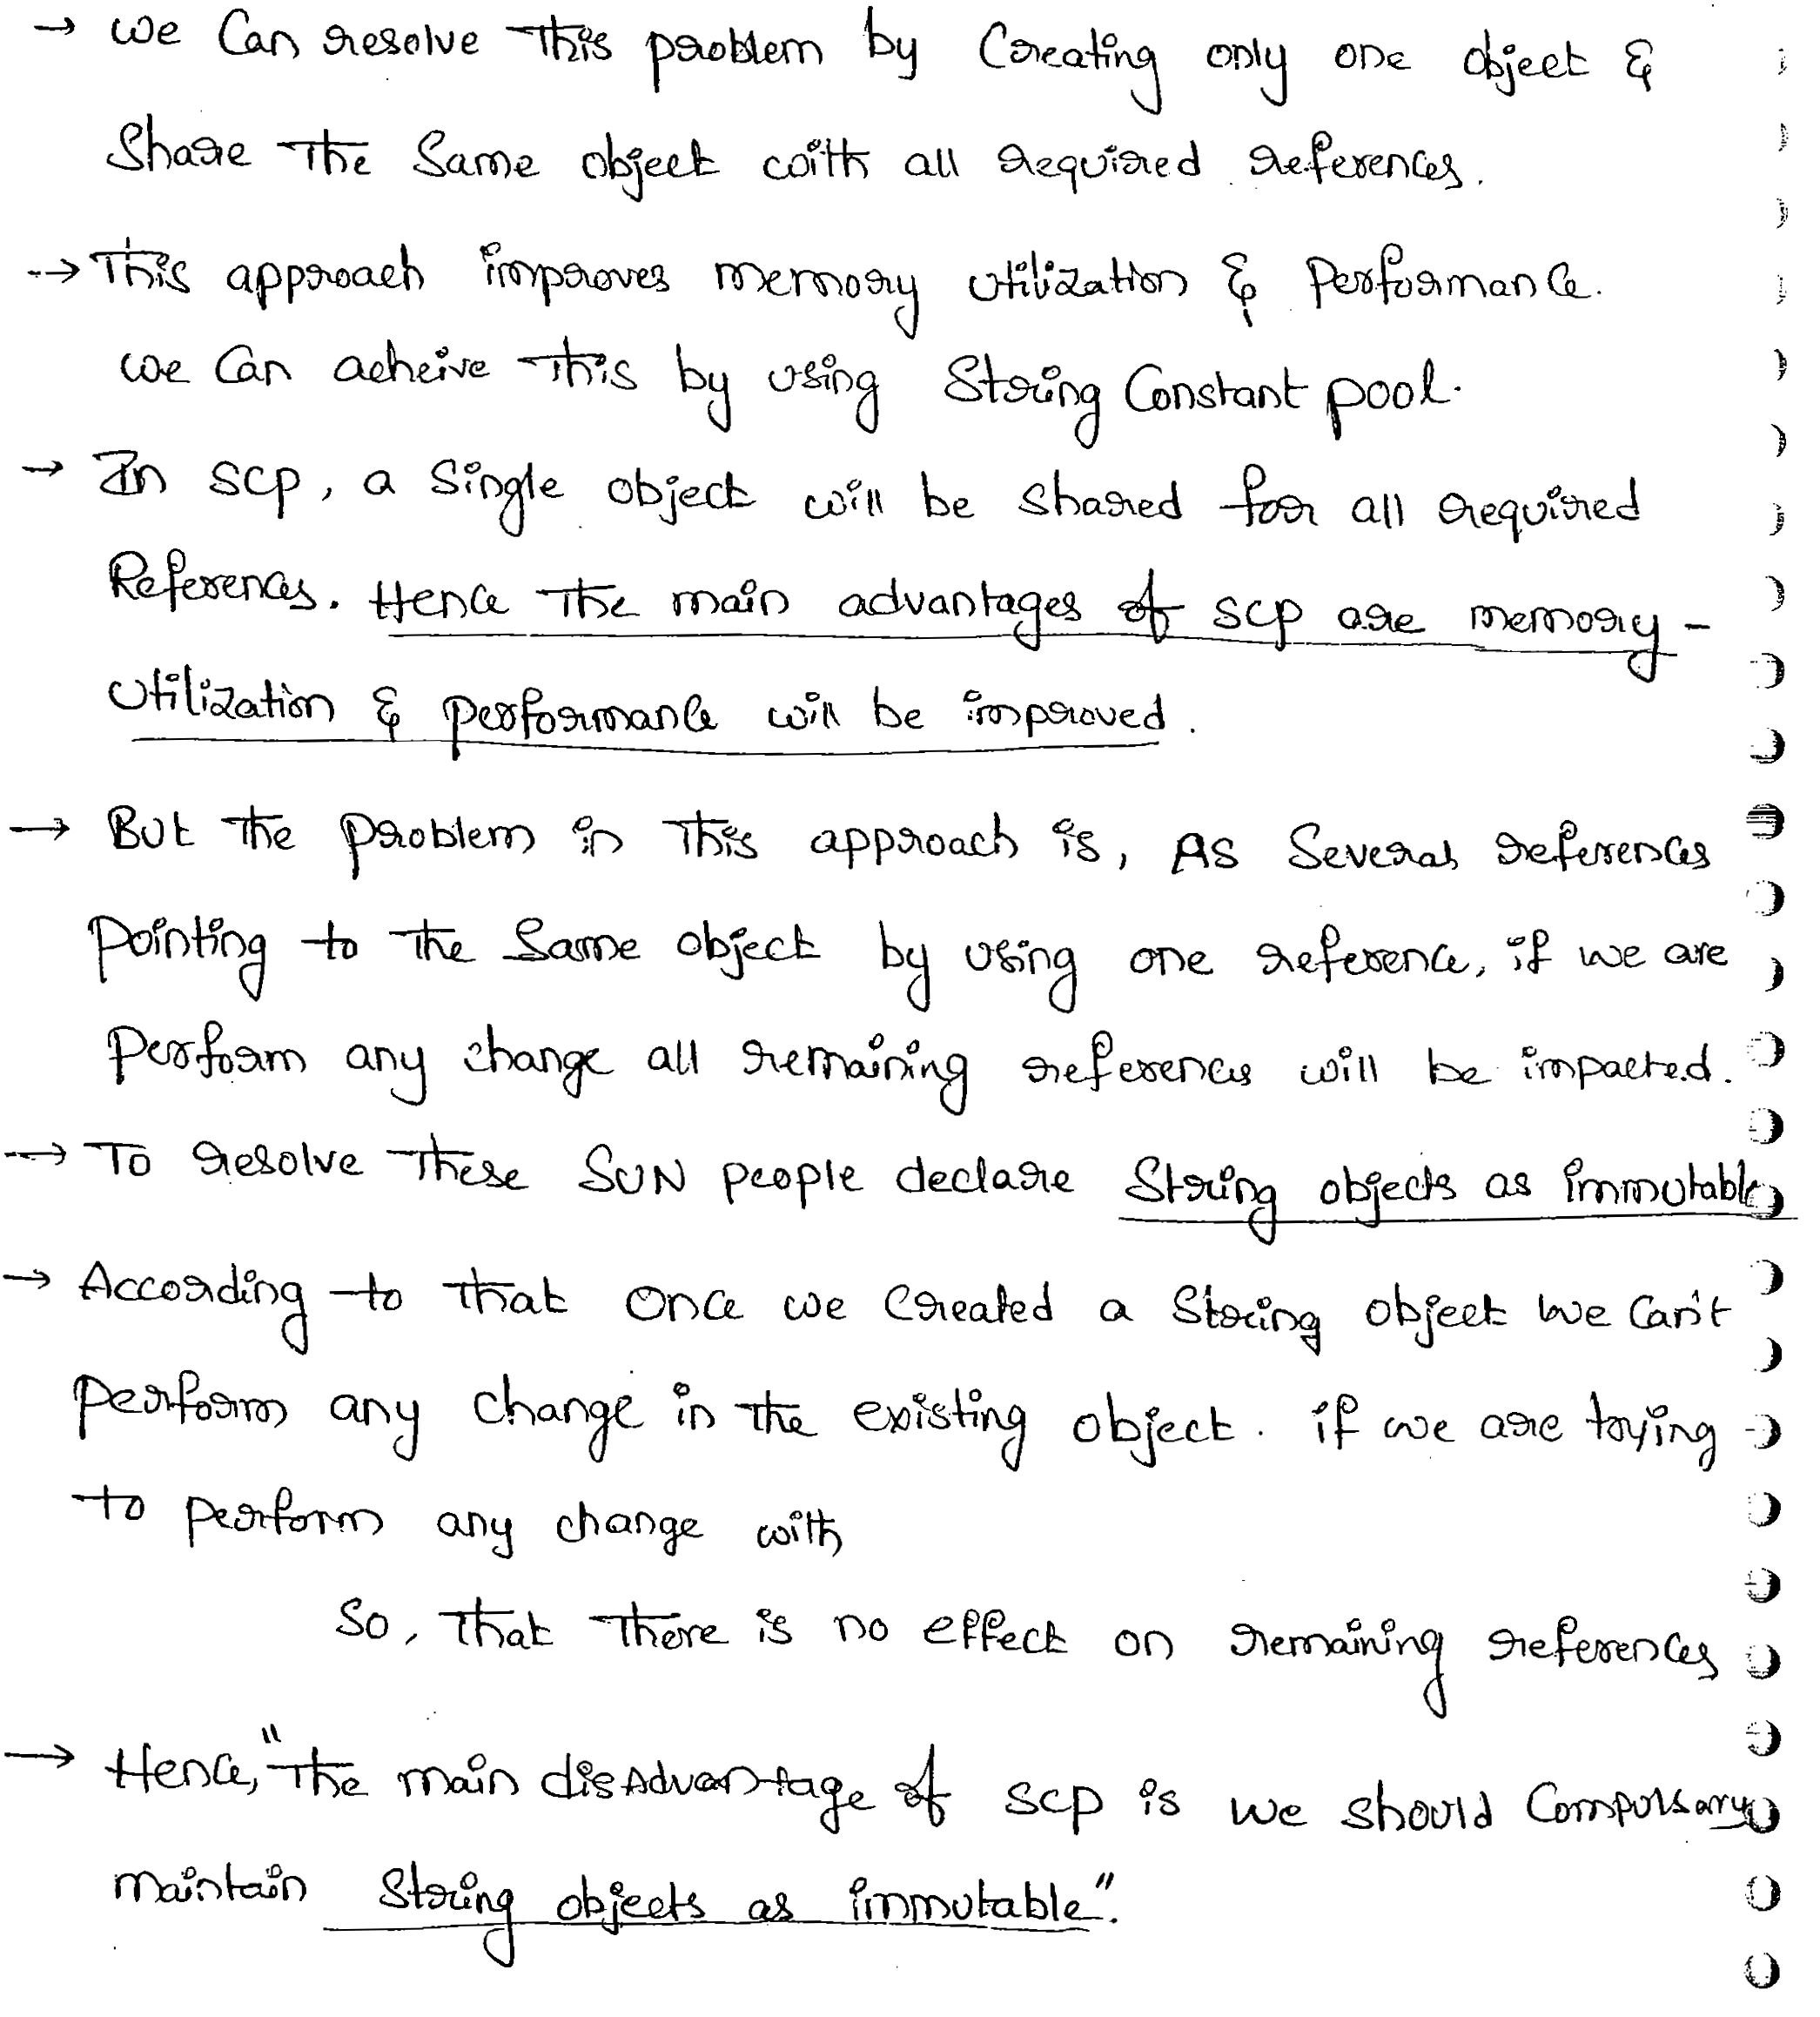 → we Can resolve This problem by Creating only one object &
Share The Same object with all required references.
→ This approach improves memory utilization & Performance.
we Can acheive This by using String Constant pool.
→ In SCP, a Single object will be shared for all required
References. Hence The main advantages of SCP are memory -
Utilization & performance will be improved.
→ But The Problem in This approach is, As Several references
Pointing to The Same object by using one reference, if we are
Perform any change all remaining references will be impacted.
→ To resolve These SUN people declare String objects as immutable
→ According to that Once we Created a String object we Can't
Perform any change in the existing object. if we are trying
to perform any change with
So, that There is no effect on remaining references
→ Hence, "The main disAdvantage of SCP is we should Compulsary
maintain String objects as immutable".